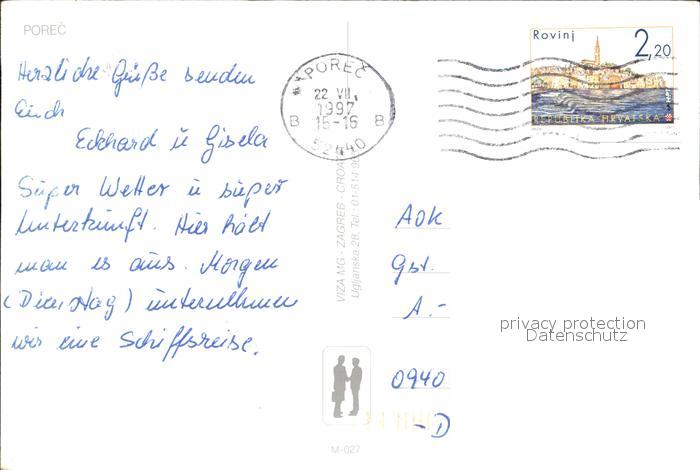 POREČ
Herzliche Grüße senden
Euch
Eckhard u Gisela
Super Wetter u super
Unterkunft. Hier hält
man es aus. Morgen
(Dienstag) unternehmen
wir eine Schiffsreise.
POREČ
22 VII.
1997
B 15-16 B
52440
Rovinj
2,20
REPUBLIKA HRVATSKA
VIZA MG - ZAGREB - CROA
Ugljanska 28, Tel. 01-614 9
AOK
Gst.
A.-
0940
-D
privacy protection
Datenschutz
M-027